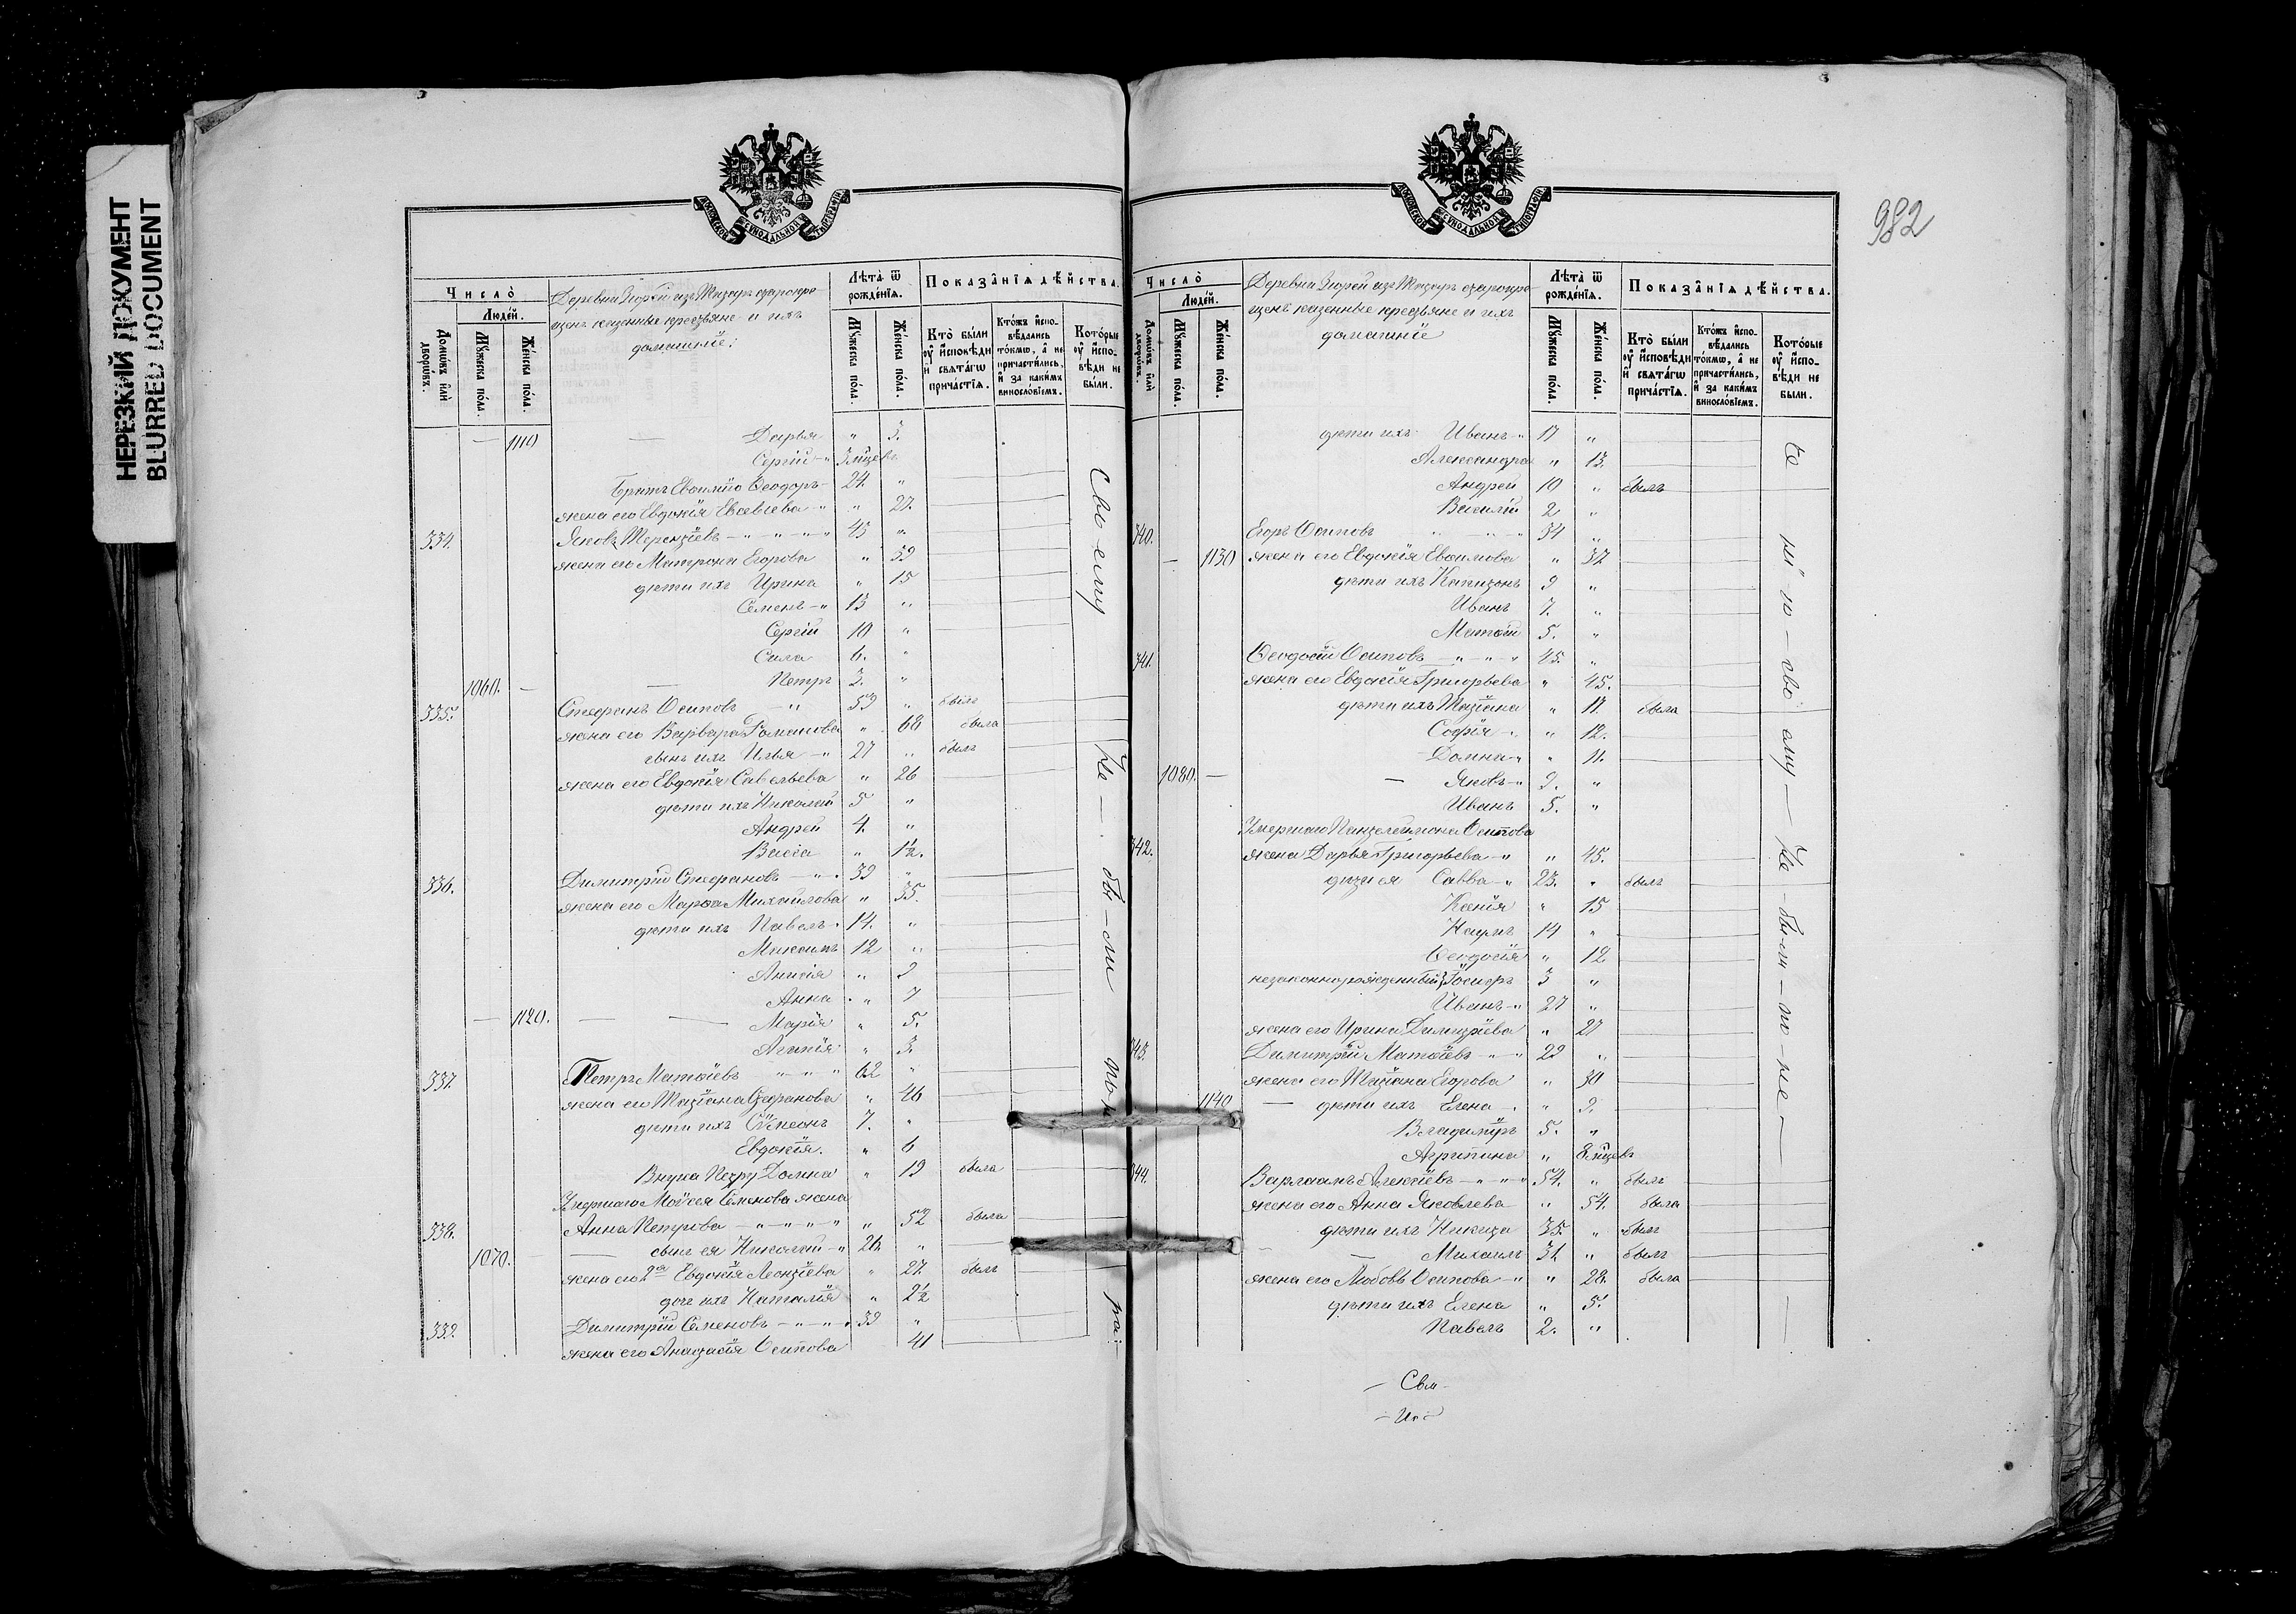 НЕРЕЗКИЙ ДОКУМЕНТ
BLURRED DOCUMENT
МОСКОВСКОЙ СѴНОДАЛЬНОЙ ТИПОГРАФІИ
Число̀
Людей.
Домѡвъ или дворѡвъ.
Мꙋжеска пола.
Женска пола.
Деревни Зюрей изъ Татаръ старокре
щены казенные крестьяне и ихъ
домашніе:
Лѣта ѿ рожденїѧ.
Мꙋжеска пола.
Женска пола.
Показанїѧ дѣйства.
Кто были оу исповѣди и свѧтагѡ причастїѧ.
Ктожъ исповѣдались токмѡ, а не причастились, и за какимъ винословїемъ.
Которые оу исповѣди не были.
— 1110 — Дарья " 3.
Сергій " 3 мѣсяцевъ
Братъ Евѳимія Ѳеодоръ 24. "
жена его Евдокія Евсевіева " " 27.
334. Яковъ Терентіевъ " " " " 45 "
жена его Матрона Егорова " 39
дѣти ихъ Ирина " 15
Семенъ " 13 "
Сергій 10 "
Сила 6. "
1060. — — Петръ 2. "
335. Стефанъ Осиповъ " 59 " былъ
жена его Варвара Романова " 68 была
сынъ ихъ Илья " 27 " былъ
жена его Евдокія Савельева " 26
дѣти ихъ Николай 5 "
Андрей 4. "
Васса " 1½.
336. Димитрій Стефановъ " 39 "
жена его Марѳа Михайлова " 35.
дѣти ихъ Павелъ 14. "
Максимъ 12 "
Анисія " 9
Анна " 7
— 1120. — — Марія " 5.
Агапія " 3.
337. Петръ Матѳіевъ " " " 62 "
жена его Татіана Стефанова " 46
дѣти ихъ Сѵмеонъ 7. "
Евдокія. " 6
Внука Петру Домна " 19 была
Умершаго Моѵсея Семенова жена
338. Анна Петрова " " " " " 52 была
1070. — сынъ ея Николай " 26. "
жена его 2ая Евдокія Леонтіева " 27. былъ
дочь ихъ Наталія " 2½
339. Димитрій Семеновъ " " " 39 "
жена его Анастасія Осипова 41
Своему
Не бы-ли по не ра:
982
МОСКОВСКОЙ СѴНОДАЛЬНОЙ ТИПОГРАФІИ
Число̀
Людей.
Домѡвъ или дворѡвъ.
Мꙋжеска пола.
Женска пола.
Деревни Зюрей изъ Татаръ старокре
щены казенные крестьяне и ихъ
домашніе
Лѣта ѿ рожденїѧ.
Мꙋжеска пола.
Женска пола.
Показанїѧ дѣйства.
Кто были оу исповѣди и свѧтагѡ причастїѧ.
Ктожъ исповѣдались токмѡ, а не причастились, и за какимъ винословїемъ.
Которые оу исповѣди не были.
дѣти ихъ Иванъ " 17 "
Александра " 13.
Андрей 10 " былъ
Василій 2 "
340. Егоръ Осиповъ " " " 34 "
— 1130 жена его Евдокія Евѳимова " 37
дѣти ихъ Капитонъ 9 "
Иванъ 7. "
Матѳій 5. "
341. Ѳеодосій Осиповъ " " " 45. "
жена его Евдокія Григорьева " 45.
дѣти ихъ Татіана " 17. была
Софія " " 12.
Домна " " 11.
1080. — — Яковъ " 9. "
Иванъ 5. "
Умершаго Пантелеймона Осипова
342. жена Дарья Григорьева " " 45.
дѣти ея Савва " 23. " былъ
Ксенія " 15
Наумъ 14 "
Ѳеодосія " 12
незаконнорожденный Іосифъ 3 "
Иванъ " 27 "
жена его Ирина Димитріева " 27
343. Димитрій Матѳіевъ " " 29 "
жена его Татіана Егорова " 30
1140 — дѣти ихъ Елена " " 9.
Владиміръ 5. "
Агрипина " 8 мѣсяцевъ
344. Варлаамъ Алексіевъ " " " 54. " былъ
жена его Анна Яковлева " 54. была
дѣти ихъ Никита 35. " былъ
— — Михаилъ 31. " былъ
жена его Любовь Осипова " " 28. была
дѣти ихъ Елена " 5.
Павелъ 2. "
сво ему — Не были по не —